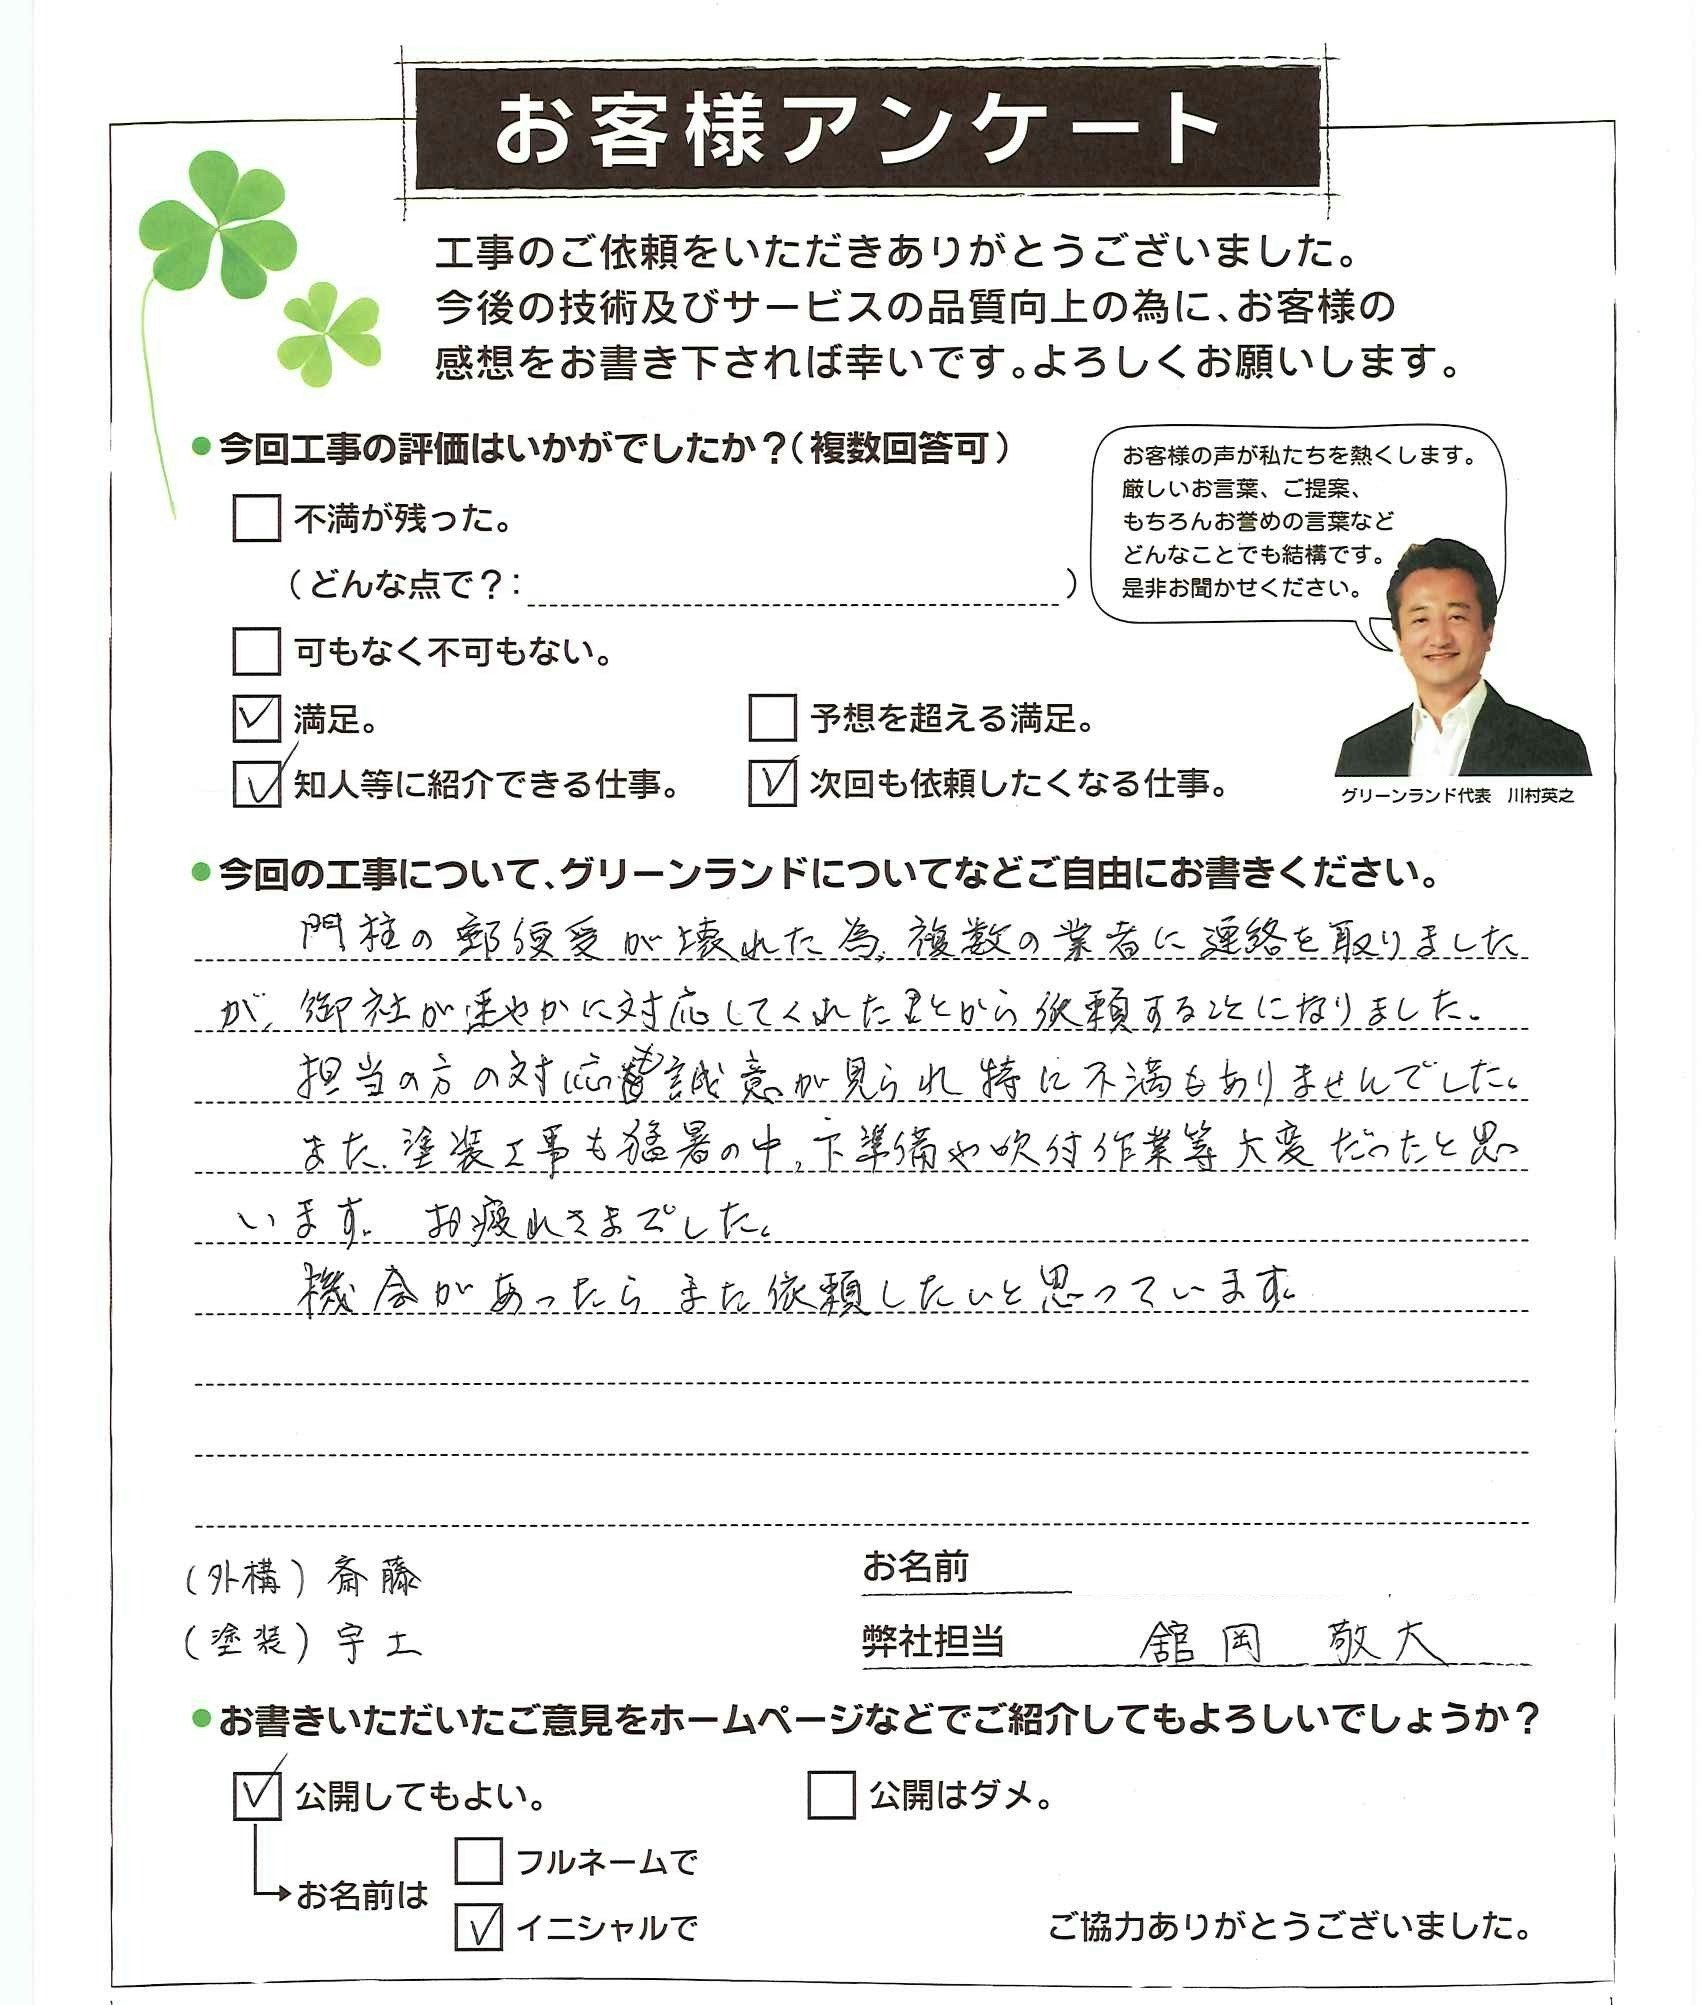 お客様アンケート
工事のご依頼をいただきありがとうございました。
今後の技術及びサービスの品質向上の為に、お客様の
感想をお書き下されば幸いです。よろしくお願いします。
●今回工事の評価はいかがでしたか？（複数回答可）
お客様の声が私たちを熱くします。
厳しいお言葉、ご提案、
もちろんお誉めの言葉など
どんなことでも結構です。
是非お聞かせください。
不満が残った。
（どんな点で？：　　　）
可もなく不可もない。
満足。
予想を超える満足。
知人等に紹介できる仕事。
次回も依頼したくなる仕事。
グリーンランド代表　川村英之
●今回の工事について、グリーンランドについてなどご自由にお書きください。
門柱の郵便受が壊れた為、複数の業者に連絡を取りました
が、御社が速やかに対応してくれたことから依頼することになりました。
担当の方の対応も誠意が見られ特に不満もありませんでした。
また、塗装工事も猛暑の中、下準備や吹付作業等大変だったと思っ
います。　お疲れさまでした。
機会があったらまた依頼したいと思っています。
（外構）斎藤
（塗装）宇土
お名前
弊社担当　舘岡　敬大
●お書きいただいたご意見をホームページなどでご紹介してもよろしいでしょうか？
公開してもよい。
公開はダメ。
お名前は
フルネームで
イニシャルで
ご協力ありがとうございました。